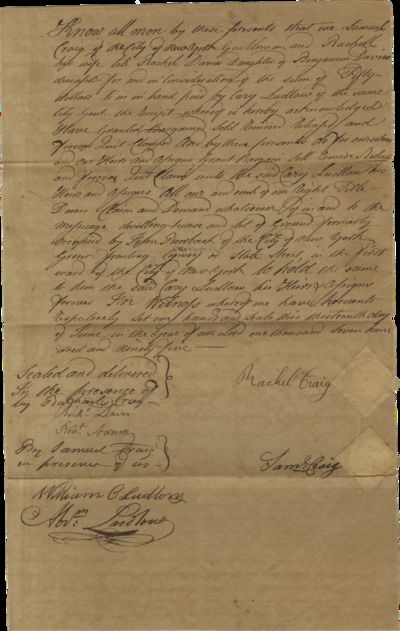 Know all men by these presents that we Samuel
Craig of the City of New York Gentleman and Rachel
his wife late Rachel Davis Daughter of Benjamin Davies
deceased for and in Consideration of the sum of Fifty
dollars to us in hand paid by Cary Ludlow of the same
City Gent the receipt whereof is hereby acknowledged
Have Granted Bargained Sold Remised Released and
forever Quit Claimed And by these presents do for ourselves
and our Heirs and Assigns Grant Bargain Sell Remise Release
and forever Quit Claim unto the said Cary Ludlow his
Heirs and Assigns All our and each of our Right Title
Dower Claim and Demand whatsoever of in and to the
Messuage dwelling house and lot of Ground formerly
Occupied by John of the City of New York
fronting State Street, in the first
ward of the City of New York To hold the same
to him the said Cary Ludlow his Heirs & Assigns
forever In Witness whereof we have hereunto
respectively set our hands and seals this thirteenth day
of June in the Year of our Lord one thousand Seven hun
dred and Ninety five
Sealed and delivered
In the presence of
by Rachel Craig
Davis
Robt. Adam
By Samuel Craig
in presence of us
Rachel Craig
Saml. Craig
William C Ludlow
Abm. Ludlow